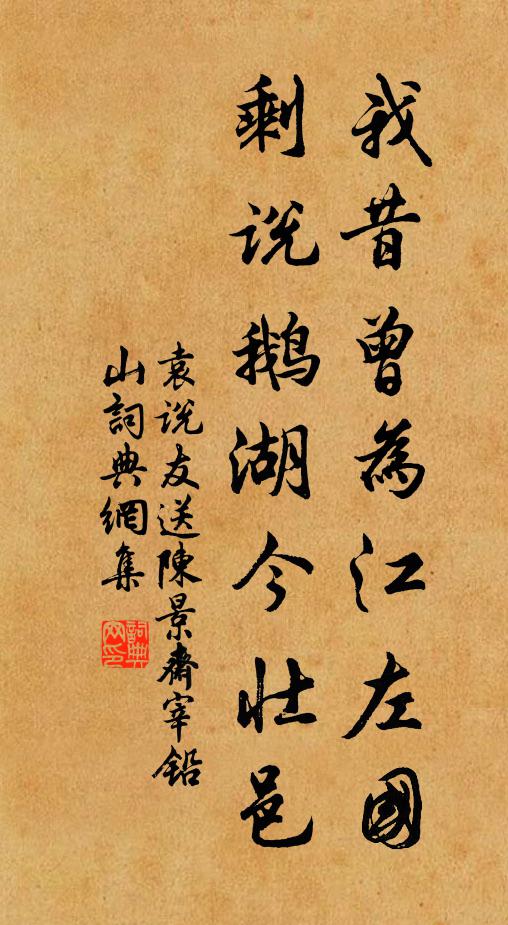 我昔曾為江左國
剩説鵝湖今壯邑
袁説友送陳景齋宰鉛
山詞典網集
詞典
网印